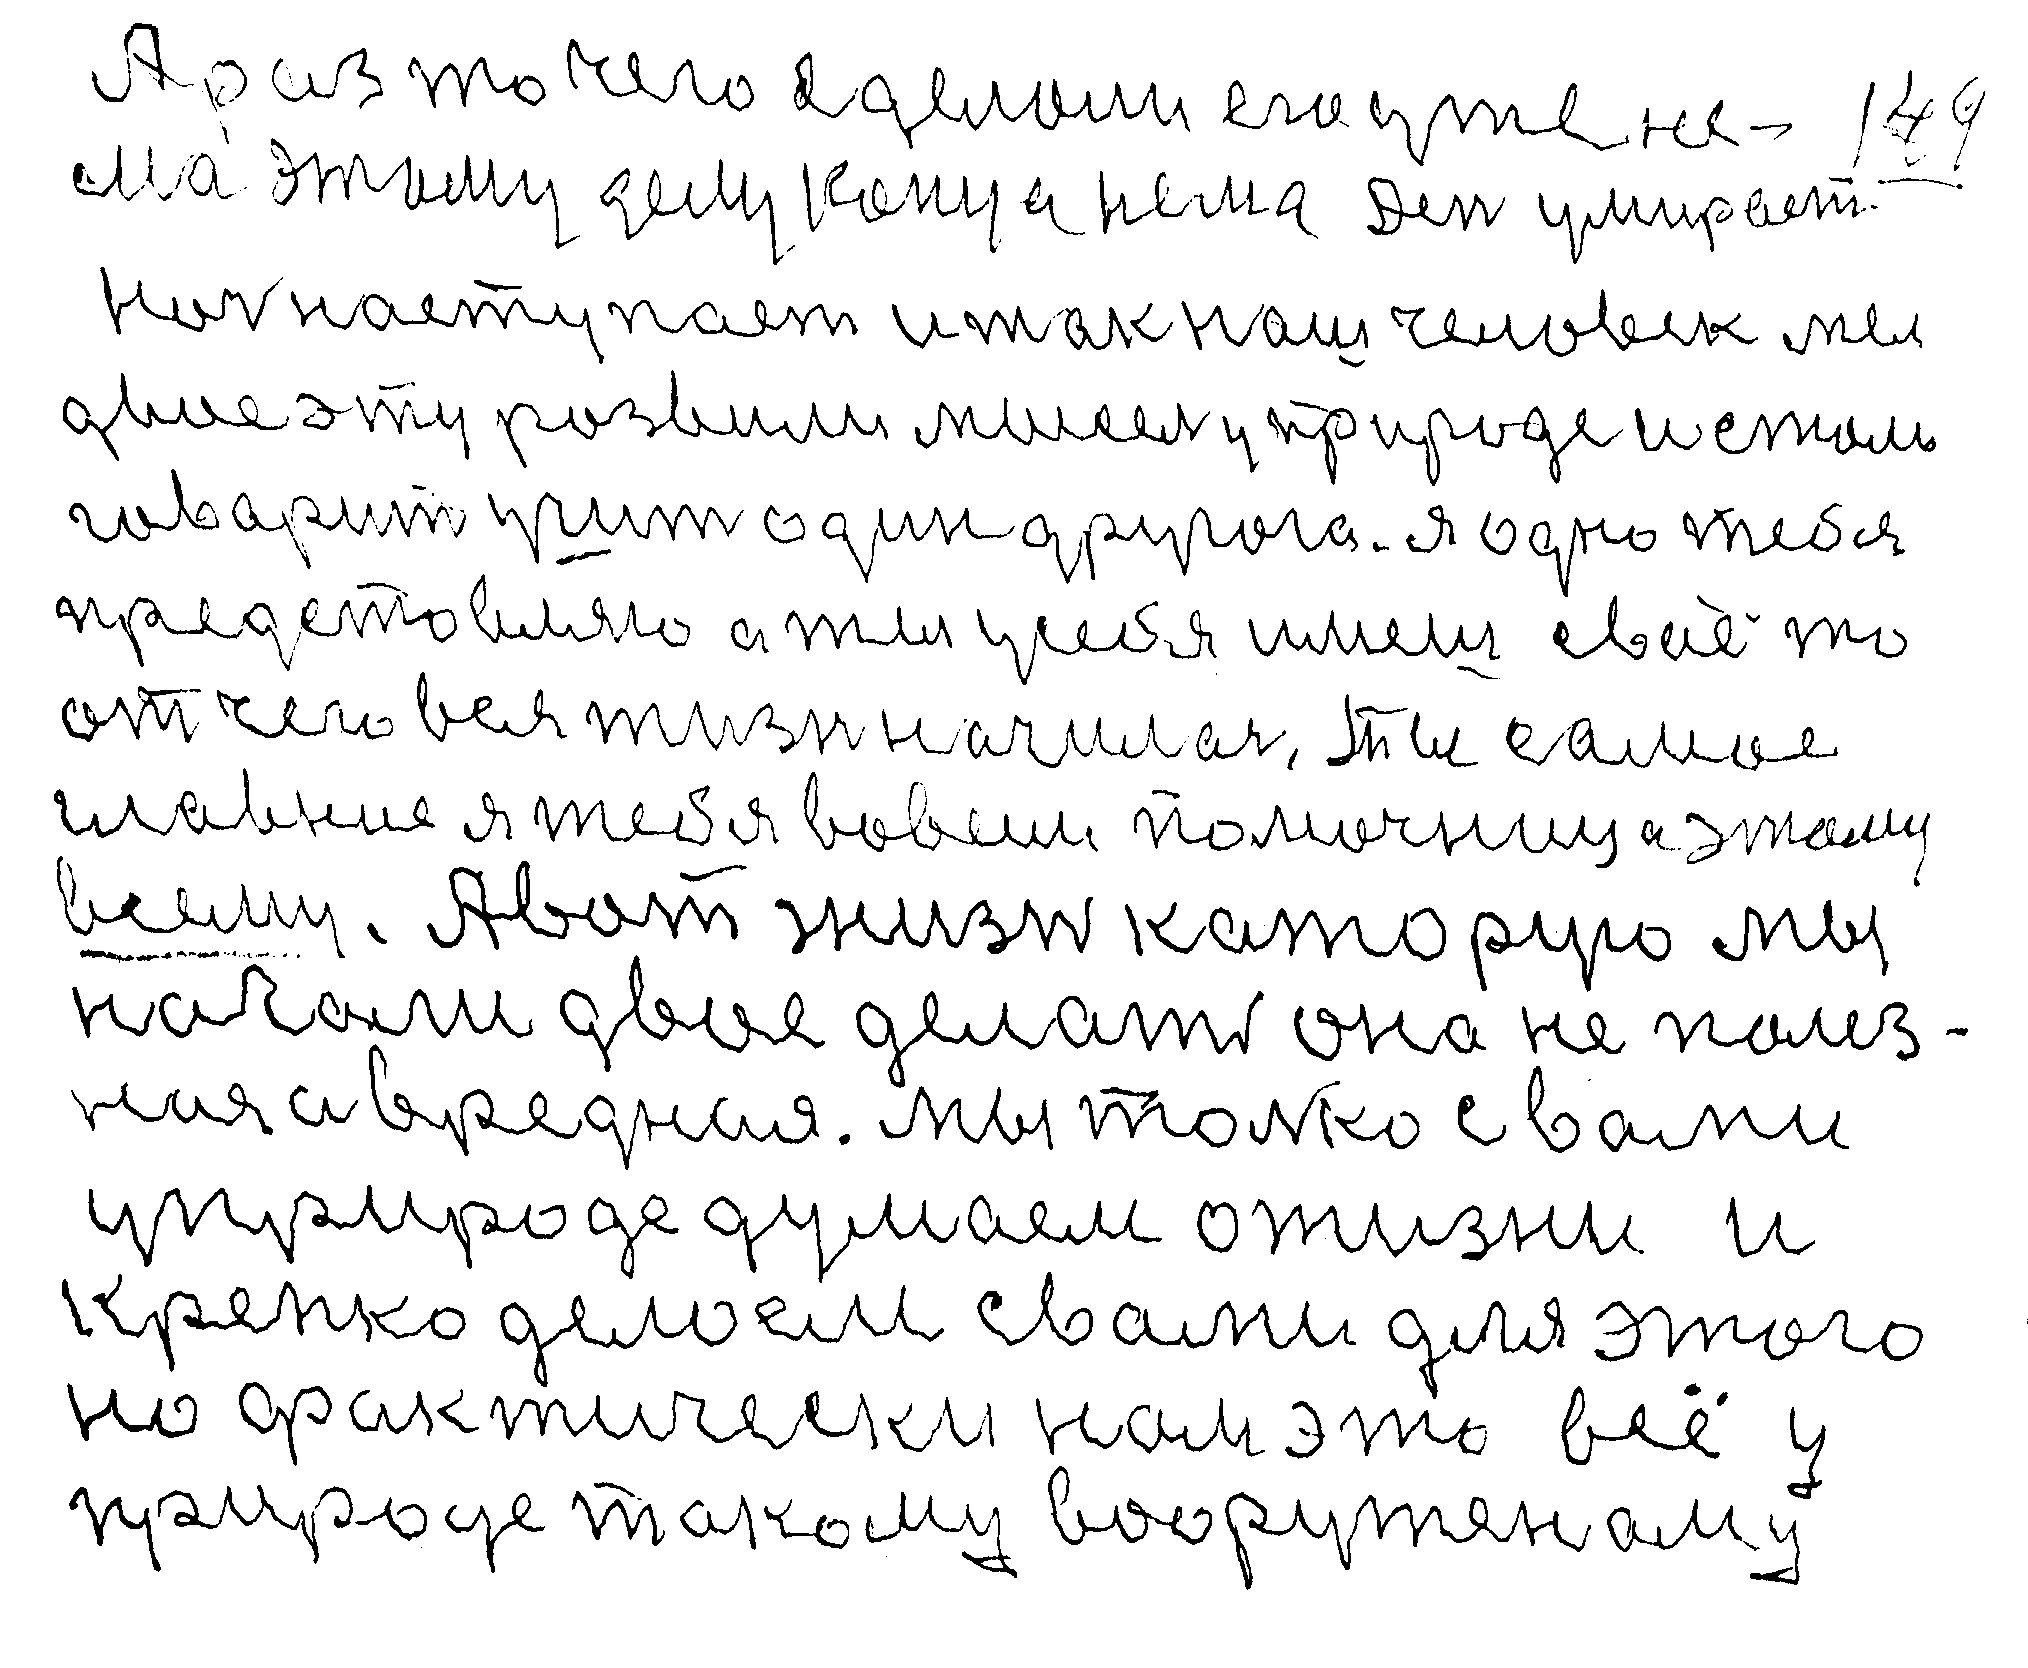 А раз то чего сделали его уже не- 149
ма этому делу конца нема Ден умирает
ноч наступает и так наш человек мы
двое эту розвили мысел у природе и стали
говарит учит один другога. я одно тебя
предстовляю а ты у себя имееш своё то
от чего вся жизн началас, Ты самое
главные я тебя вовсем помочница этому
всему. А вот жизн каторую мы
начали двое делат она не полез-
ная а вредная. Мы толко с вами
у природе думаем о жизни и
крепко делоем с вами для этого
но фактически нам это всё у
природе такому вооруженаму